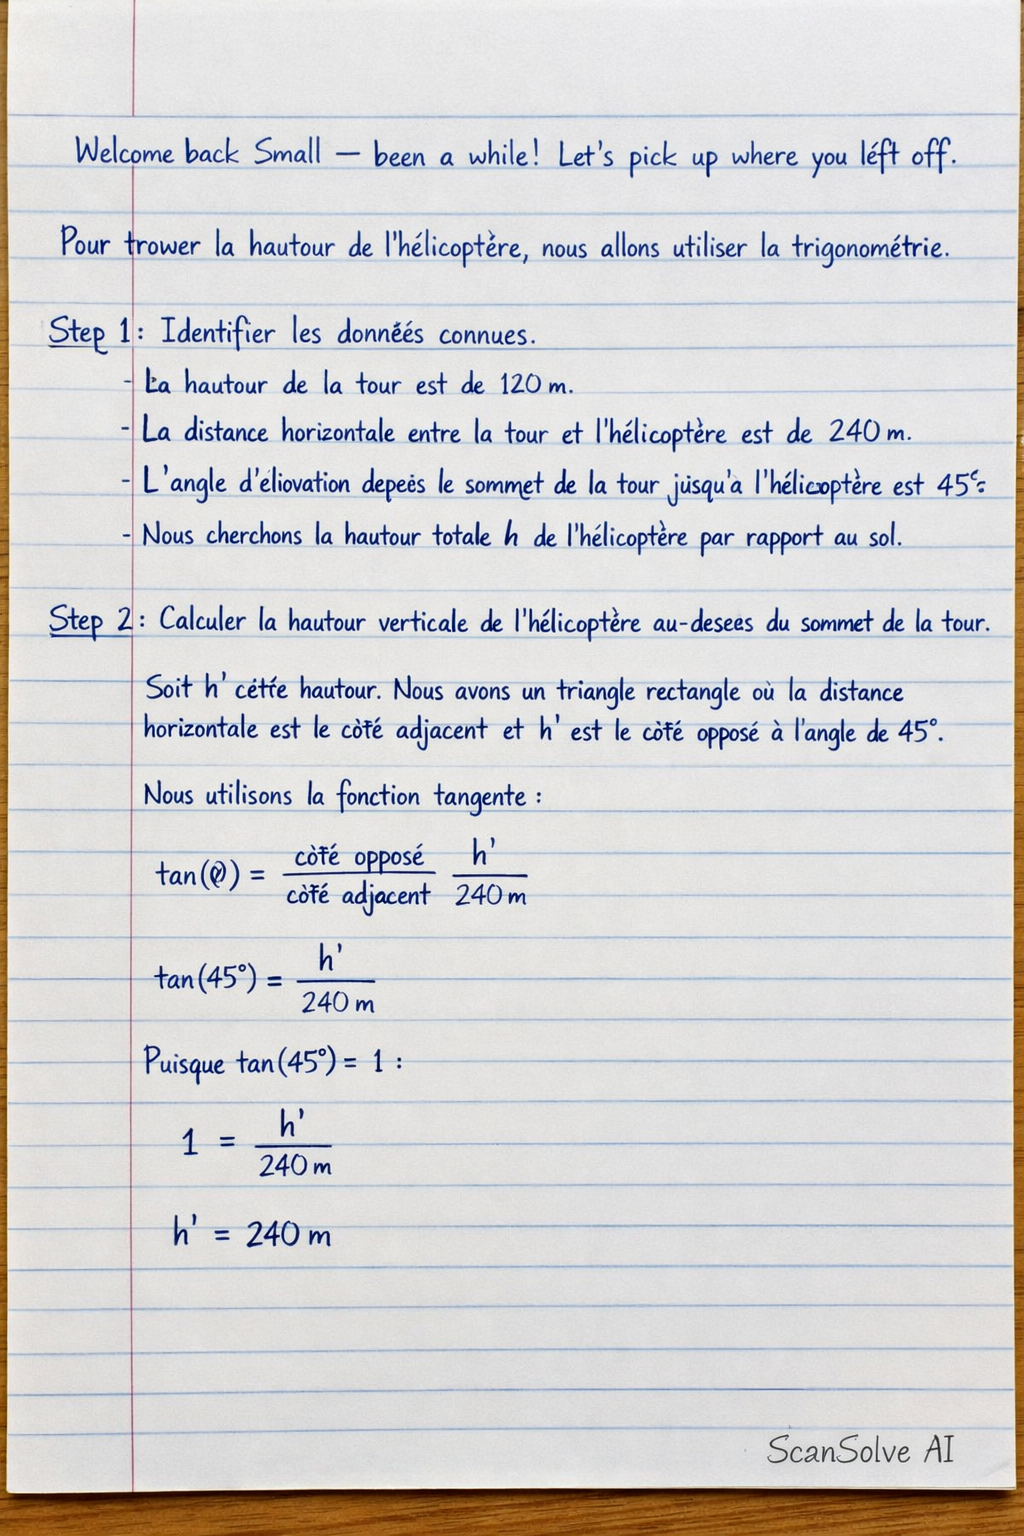 Welcome back Small — been a while! Let's pick up where you léft off.
Pour trower la hautour de l'hélicoptère, nous allons utiliser la trigonométrie.
Step 1: Identifier les donnéés connues.
- La hautour de la tour est de 120 m.
- La distance horizontale entre la tour et l'hélicoptère est de 240 m.
- L'angle d'éliovation depeès le sommet de la tour jusqu'à l'hélicoptère est 45°.
- Nous cherchons la hautour totale h de l'hélicoptère par rapport au sol.
Step 2: Calculer la hautour verticale de l'hélicoptère au-desees du sommet de la tour.
Soit h' cétte hautour. Nous avons un triangle rectangle où la distance
horizontale est le còté adjacent et h' est le còté opposé à l'angle de 45°.
Nous utilisons la fonction tangente :
tan( ) = còté opposé / còté adjacent h' / 240 m
tan(45°) = h' / 240 m
Puisque tan(45°) = 1 :
1 = h' / 240 m
h' = 240 m
ScanSolve AI